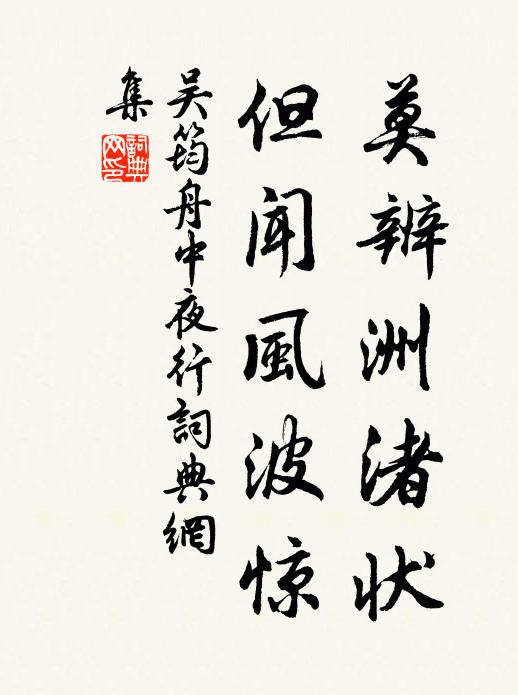 莫辨洲渚状
但闻風波惊
吴筠舟中夜行詞典網
集
詞典網印